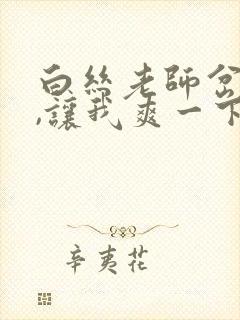 白絲老師岔
,讓我爽一下
辛夷花